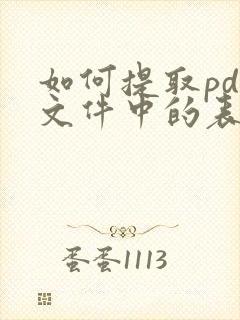 如何提取pd
文件中的表
蛋蛋1113